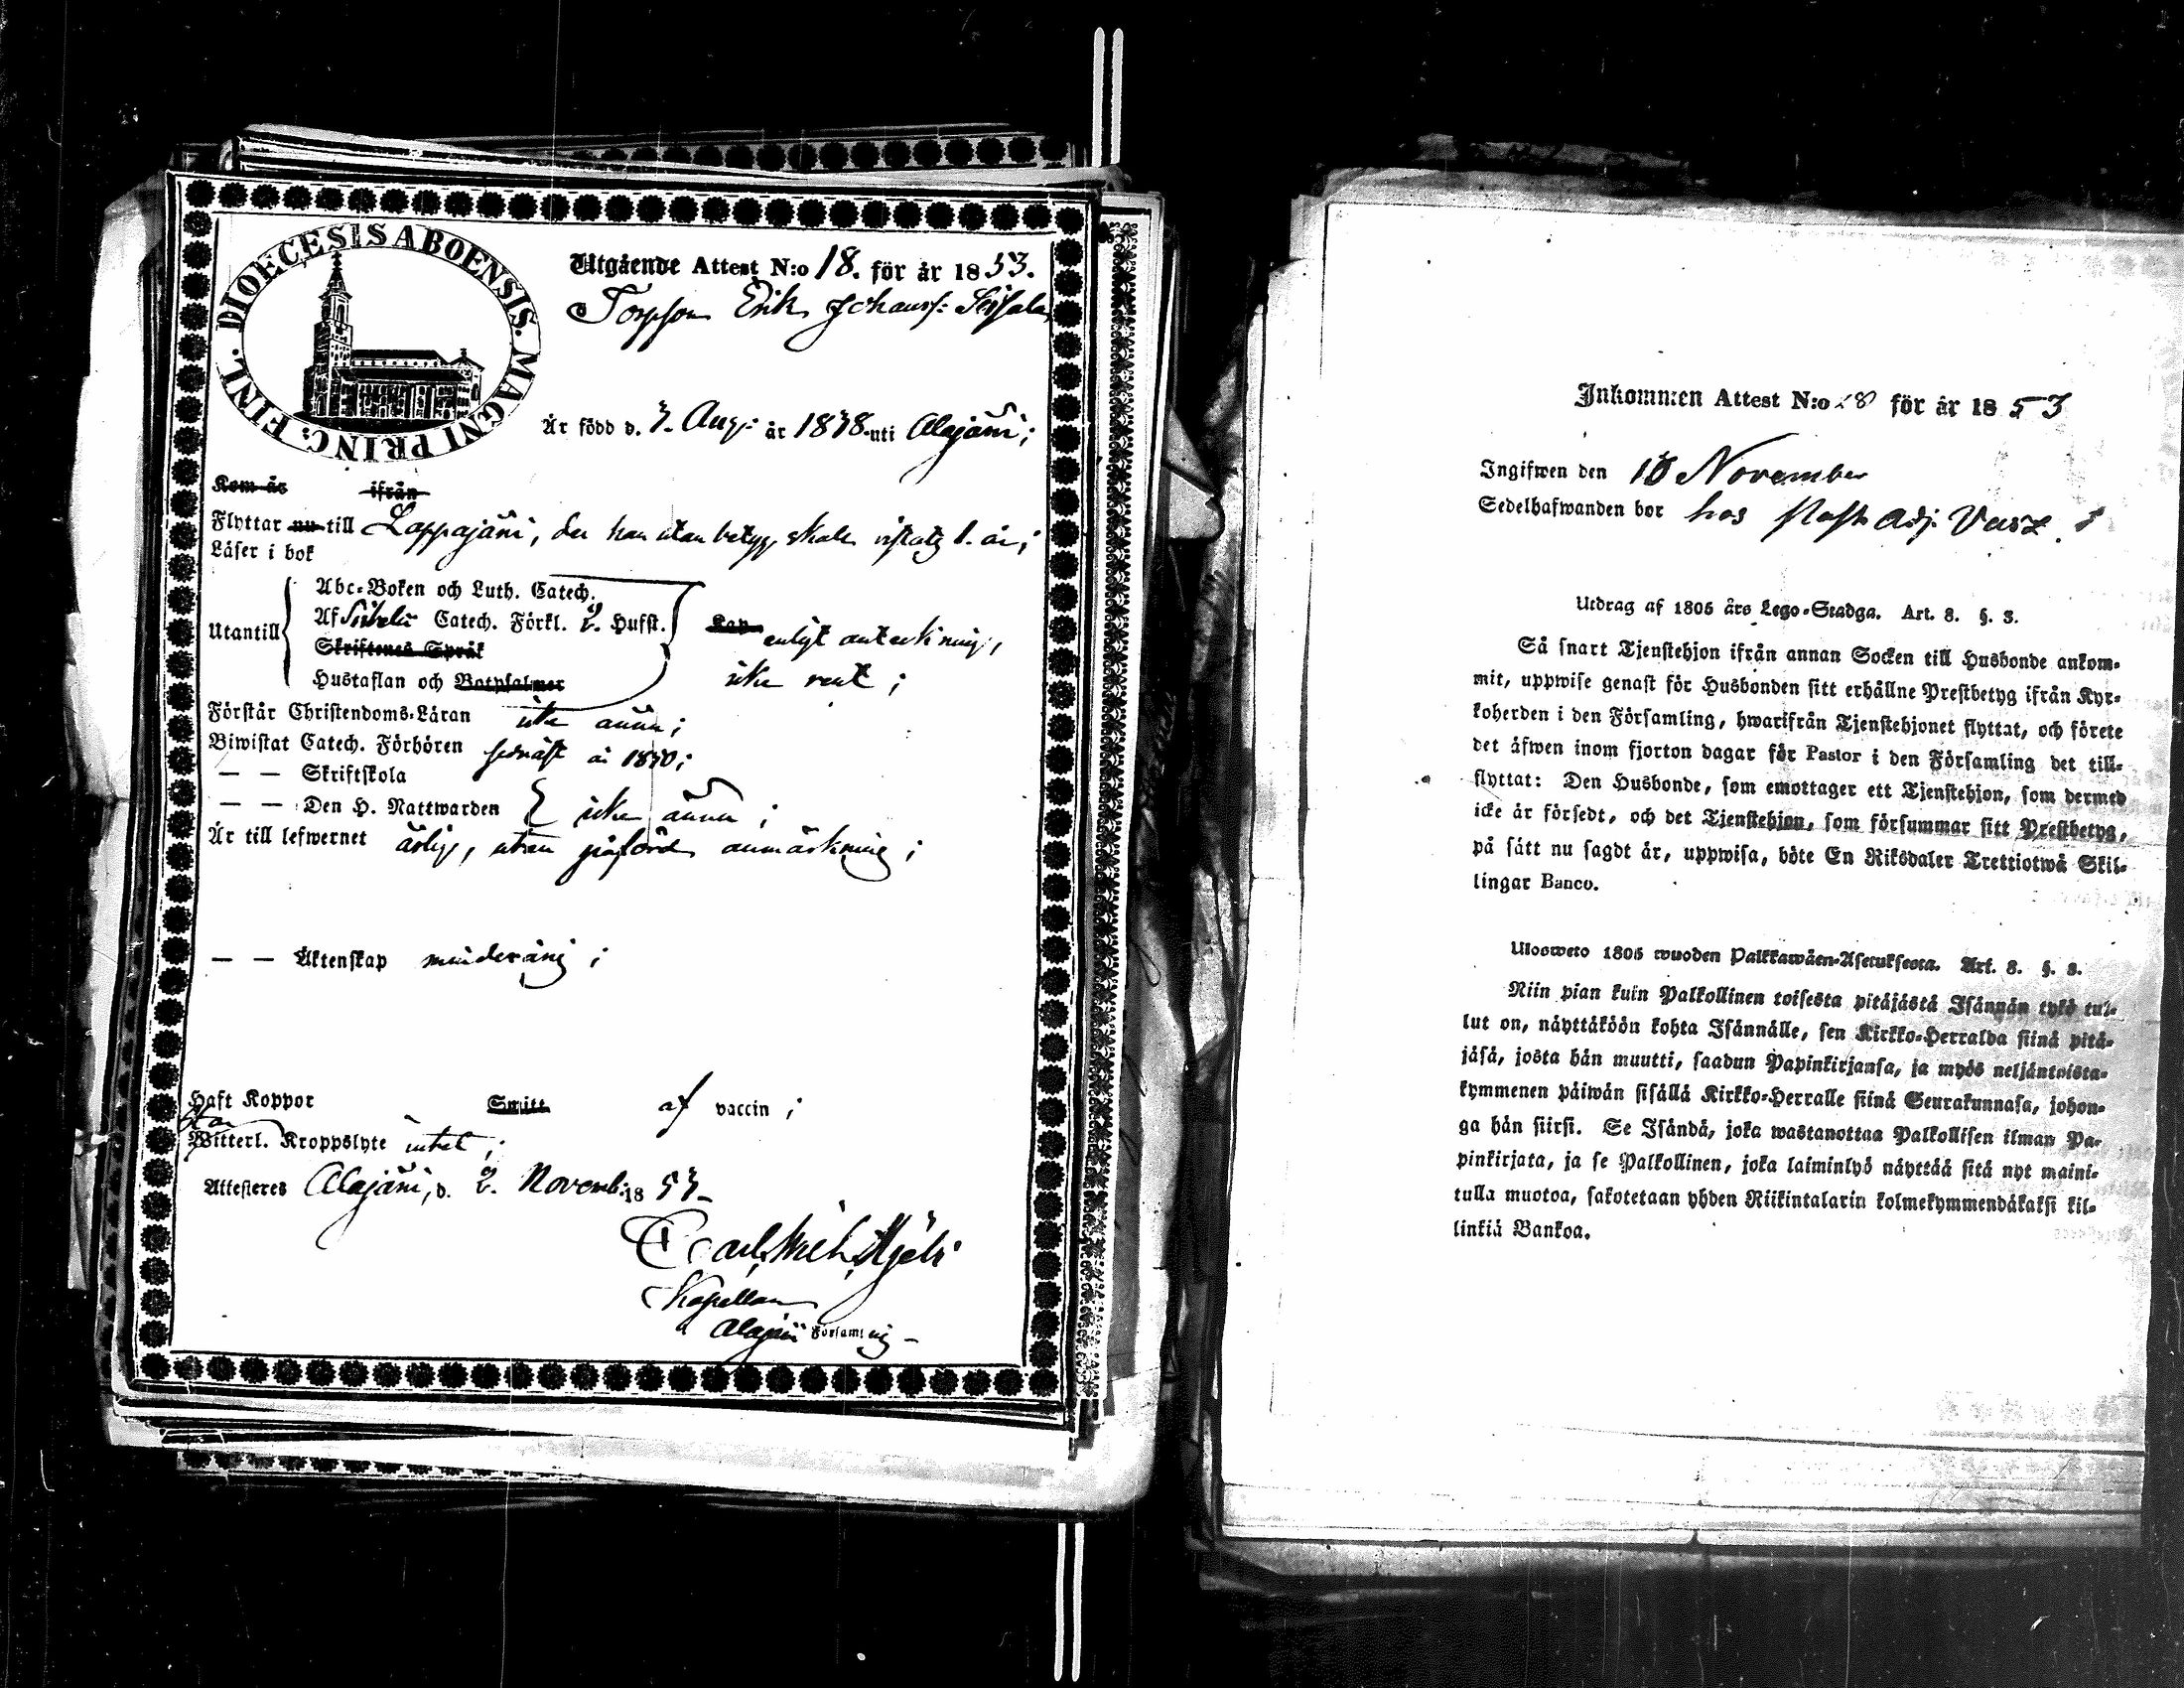 DIOECESIS ABOENSIS. MAGNI PRINC: FINL.
Utgående Attest N:o 18. för år 1853.
Torpson Erik Johanss:
Är född d. 7. Aug: år 1838 uti Alajärvi;
Kom år ifrån
Flyttar nu till Lappajärvi, der han utan betyg skall vistats 1. år;
Läser i bok
Utantill
Abc-Boken och Luth. Catech.
Af Catech. Förkl. 2. Hufst.
Skriftenes Språk
Hustaflan och Botpsalmer
Kan enligt anteckning,
icke rent;
Förstår Christendoms-Läran icke ännu;
Biwistat Catech. Förhören sednast år 1850;
— — Skriftskola
— — Den H. Nattwarden icke ännu;
Är till lefwernet ärlig, utan påförd anmärkning;
— — Äktenskap minderårig;
Haft Koppor Smitt af vaccin;
Witterl. Kroppslyte intet;
Attesteres Alajärvi, d. 2. Novemb: 1853
Kapellan
Alajärvi Församling
Inkommen Attest N:o 18 för år 1853
Ingifwen den 18 November
Sedelhafwanden bor hos Past. Adj.
Utdrag af 1805 års Lego-Stadga. Art. 8. §. 3.
Så snart Tjenstehjon ifrån annan Socken till Husbonde ankom-
mit, uppwise genast för Husbonden sitt erhållne Prestbetyg ifrån Kyr-
koherden i den Församling, hwarifrån Tjenstehjonet flyttat, och förete
det äfwen inom fjorton dagar för Pastor i den Församling det till-
flyttat: Den Husbonde, som emottager ett Tjenstehjon, som dermed
icke är försedt, och det Tjenstehjon, som försummar sitt Prestbetyg,
på sätt nu sagdt är, uppwisa, böte En Riksdaler Trettiotwå Skil-
lingar Banco.
Ulosweto 1805 wuoden Palkkawäen-Asetuksesta. Art. 8. §. 3.
Niin pian kuin Palkollinen toisesta pitäjästä Isännän tykö tul-
lut on, näyttäköön kohta Isännälle, sen Kirkko-Herralda siinä pitä-
jäsä, josta hän muutti, saadun Papinkirjansa, ja myös neljäntoista-
kymmenen päiwän sisällä Kirkko-Herralle siinä Seurakunnasa, johon-
ga hän siirsi. Se Isändä, joka wastanottaa Palkollisen ilman Pa-
pinkirjata, ja se Palkollinen, joka laiminlyö näyttää sitä nyt maini-
tulla muotoa, sakotetaan yhden Riikintalarin kolmekymmendäkaksi kil-
linkiä Bankoa.